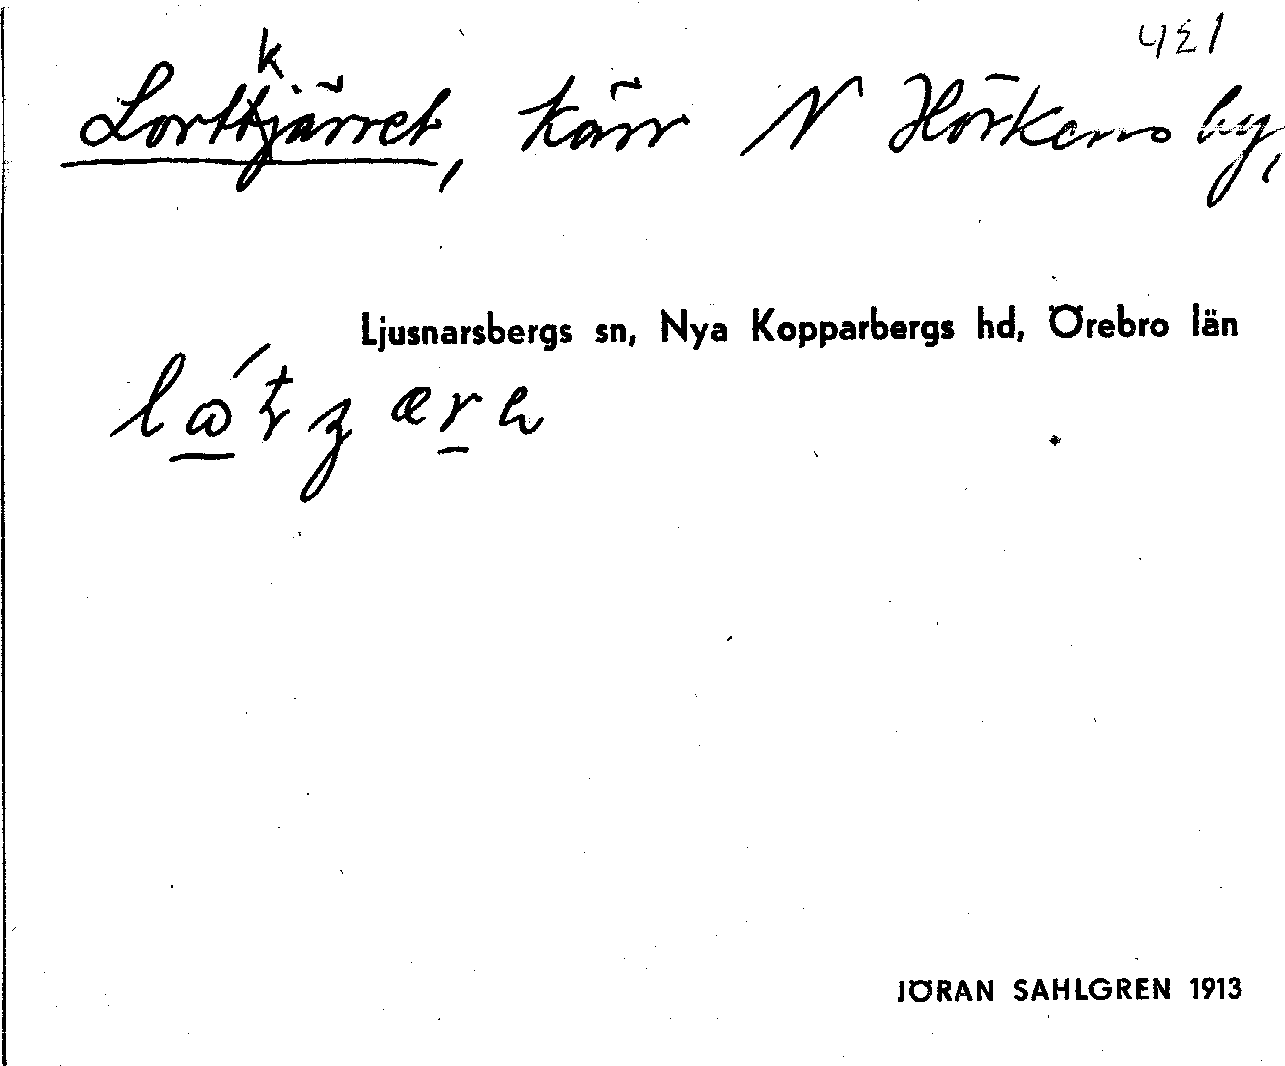 421
Lortkjärret, kärr N Hörkens by,
Ljusnarsbergs sn, Nya Kopparbergs hd, Örebro län
JÖRAN SAHLGREN 1913